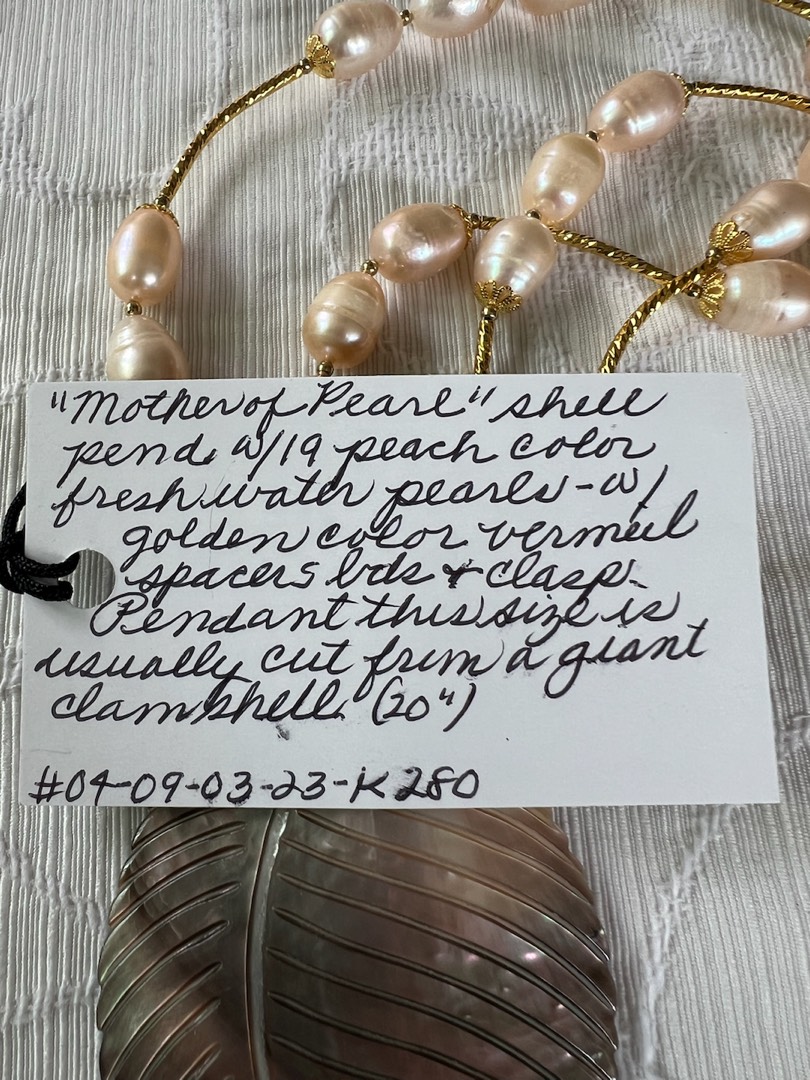 "Mother of Pearl" shell
pend. w/19 peach color
fresh water pearls - w/
golden color vermeil
spacers bds & clasp.
Pendant this size is
usually cut frum a giant
clam shell. (20")
#04-09-03-23-K280